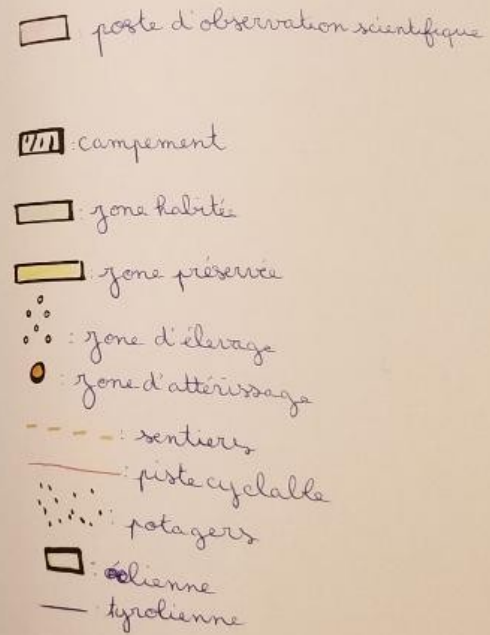 poste d'observation scientifique
: campement
: zone habitée
: zone préservée
: zone d'élevage
: zone d'attérissage
: sentiers
: piste cyclable
: potagers
: éolienne
: tyrolienne